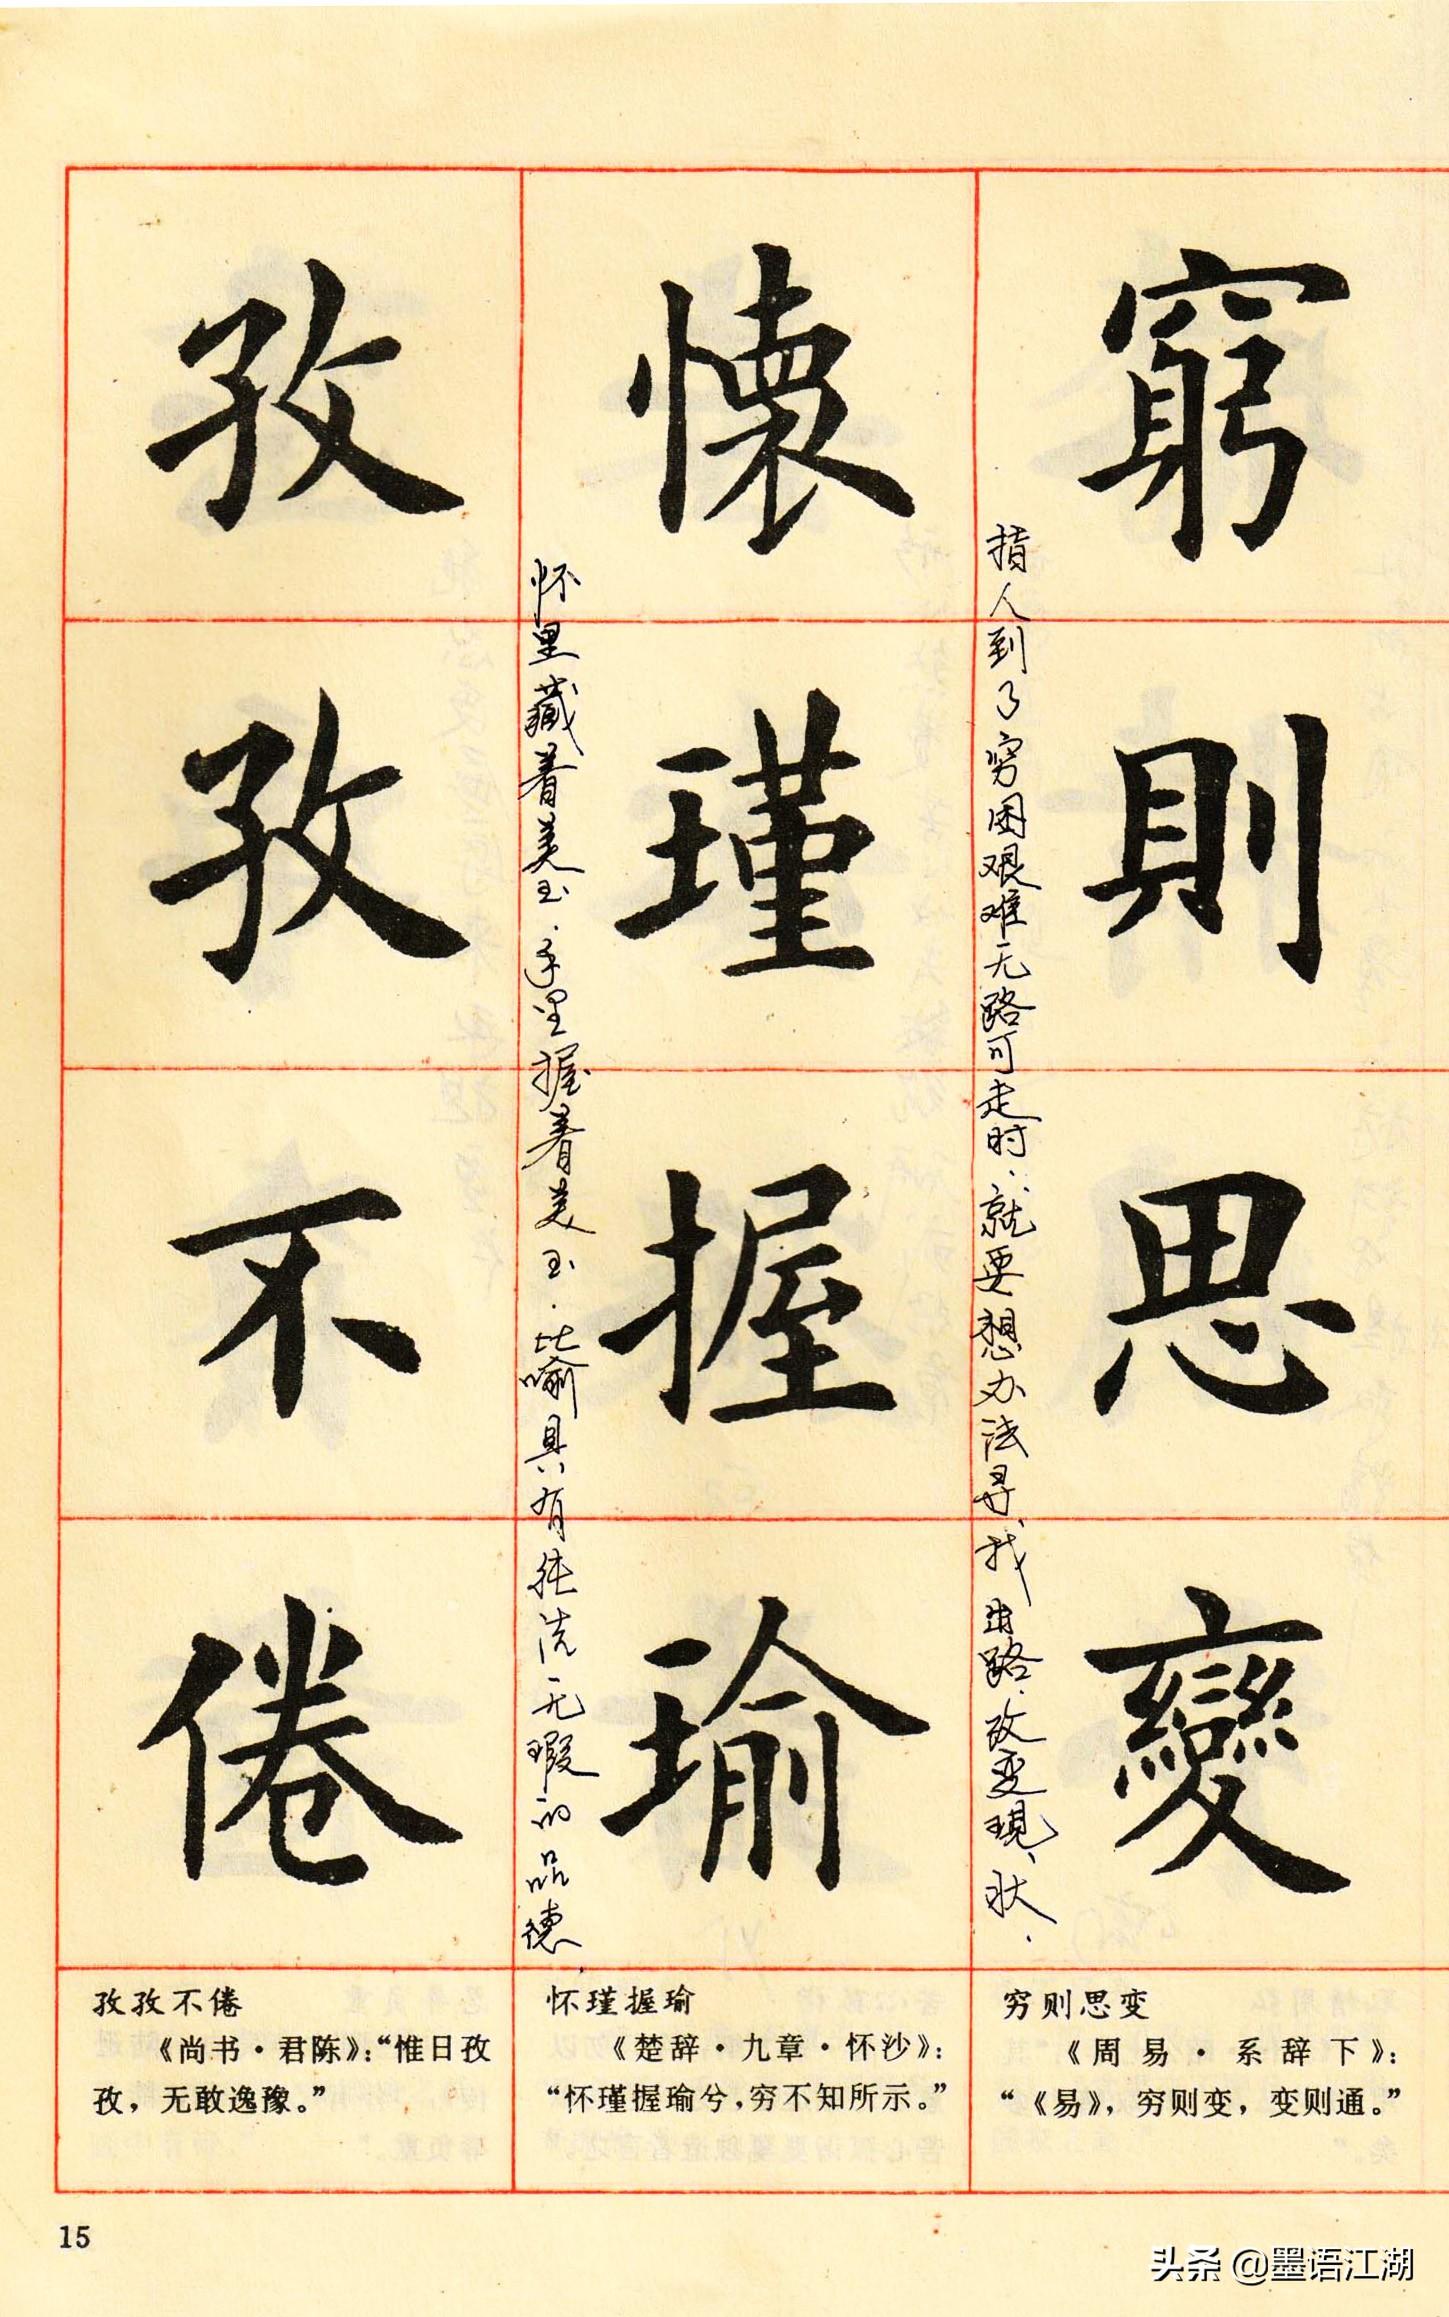 窮則思變
指人到了穷困艰难无路可走时，就要想办法寻找出路，改变现状．
懷瑾握瑜
怀里藏着美玉．手里握着美玉．比喻具有纯洁无瑕的品德．
孜孜不倦
穷则思变
《周易·系辞下》：
“《易》，穷则变，变则通。”
怀瑾握瑜
《楚辞·九章·怀沙》：
“怀瑾握瑜兮，穷不知所示。”
孜孜不倦
《尚书·君陈》：“惟日孜
孜，无敢逸豫。”
15
头条 @墨语江湖